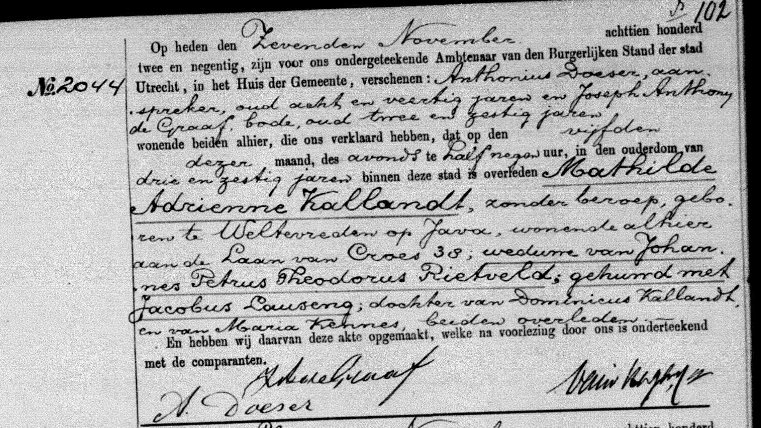 102
Op heden den Zevenden November achttien honderd
twee en negentig, zijn voor ons ondergeteekende Ambtenaar van den Burgerlijken Stand der stad
No 2044 Utrecht, in het Huis der Gemeente, verschenen: Anthonius Doeser, aan-
spreker, oud acht en veertig jaren en Joseph Anthony
de Graaf, bode, oud twee en zestig jaren
wonende beiden alhier, die ons verklaard hebben, dat op den vijfden
dezer maand, des avonds te half negen uur, in den ouderdom van
drie en zestig jaren binnen deze stad is overleden Mathilde
Adrienne Kallandt, zonder beroep, gebo-
ren te Weltevreden op Java, wonende alhier
aan de Laan van Croes 38; weduwe van Johan-
nes Petrus Theodorus Rietveld; gehuwd met
Jacobus Lauseng; dochter van Dominicus Kallandt,
en van Maria Kennes, beiden overleden
En hebben wij daarvan deze akte opgemaakt, welke na voorlezing door ons is onderteekend
met de comparanten.
de Graaf
A. Doeser